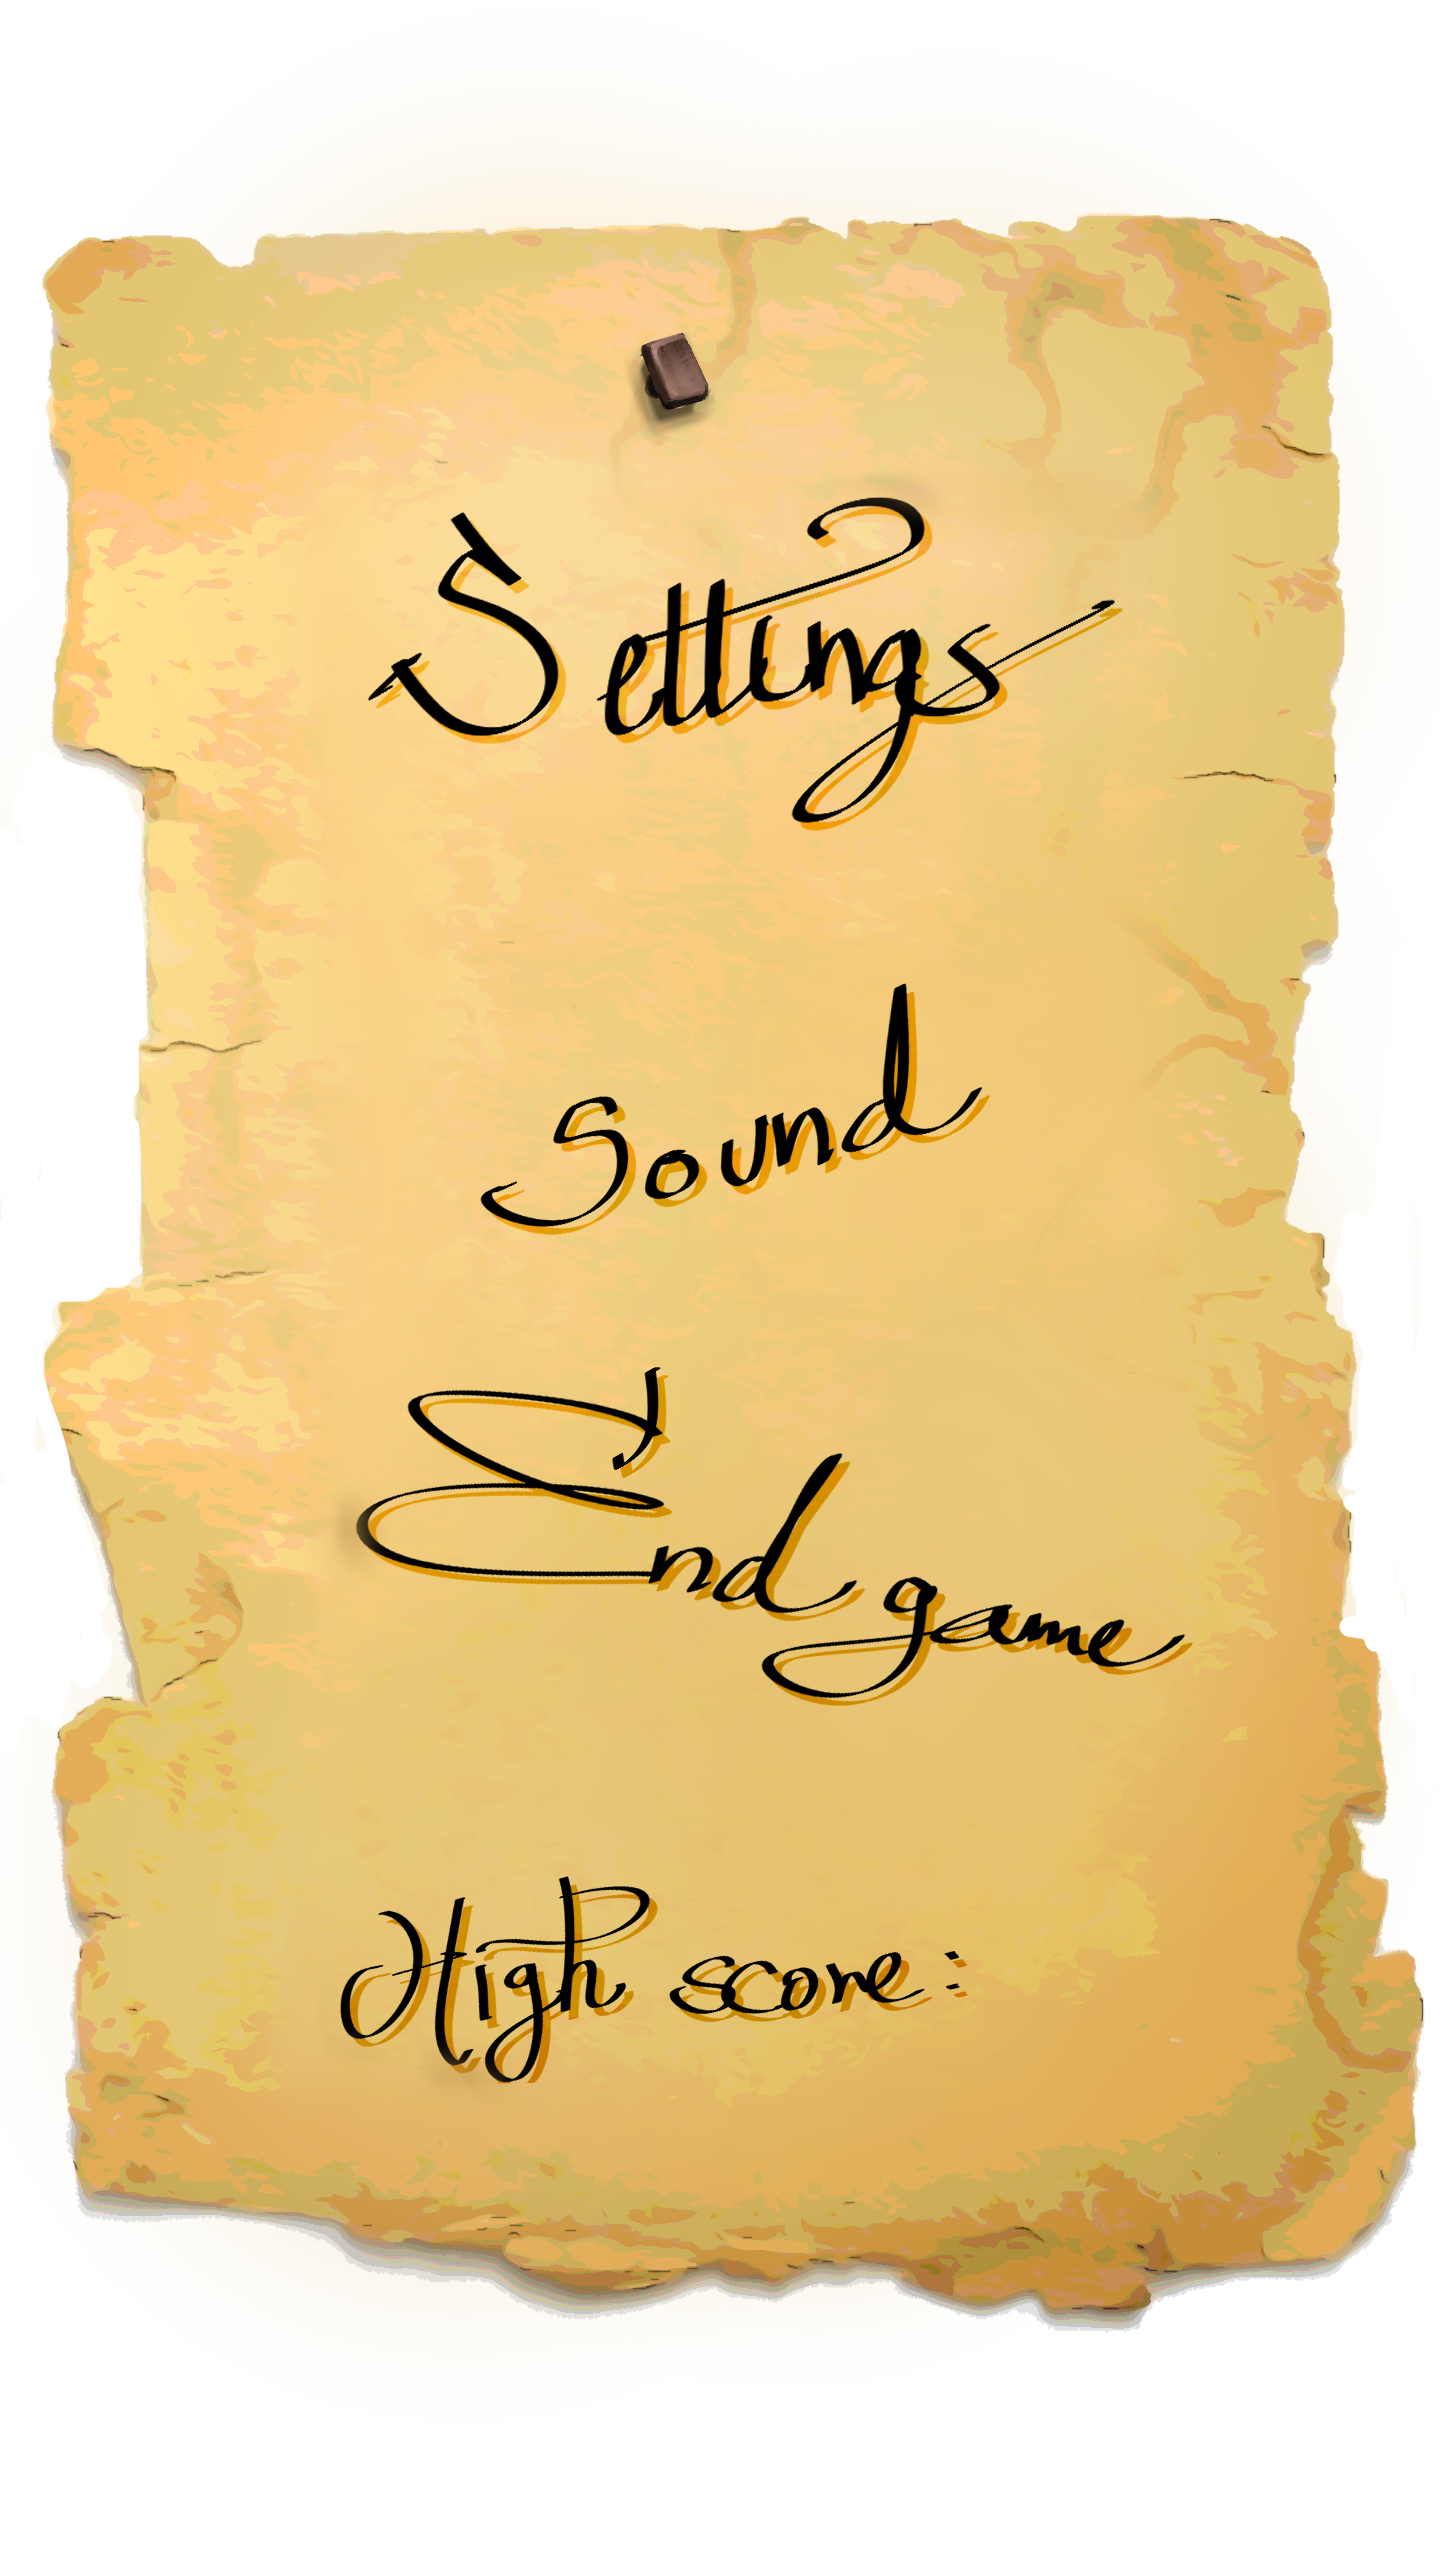 Settings
Sound
End game
High score: